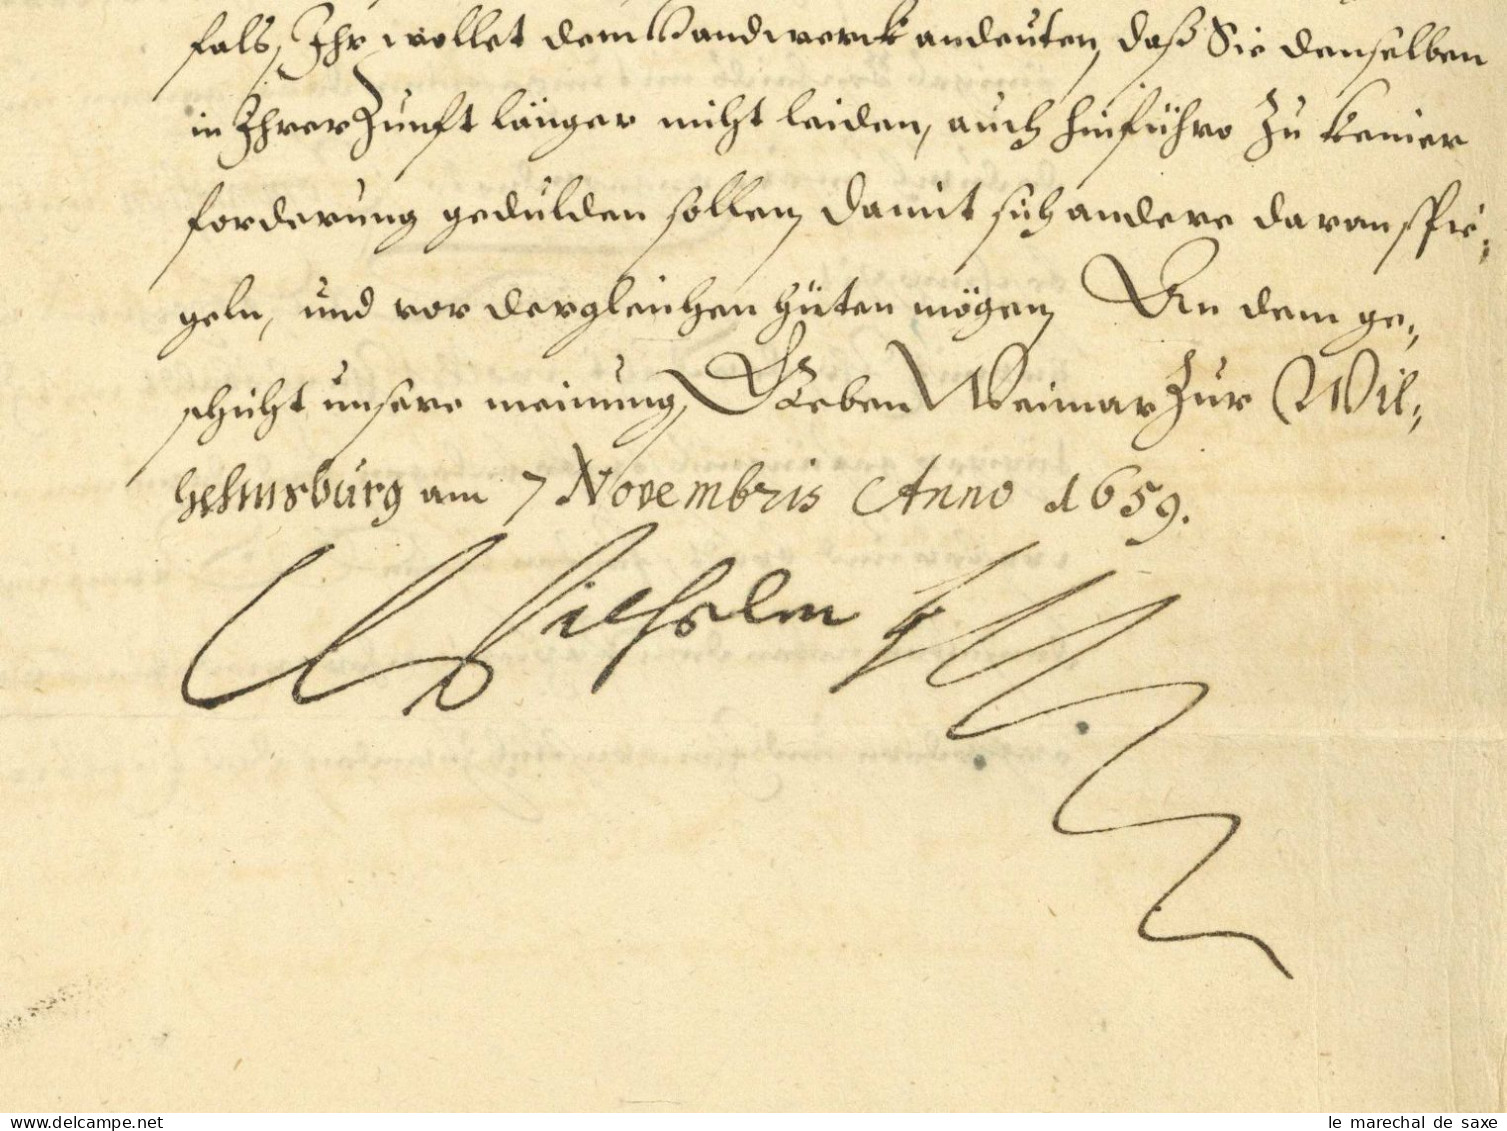 fals, Ihr wollet dem Handwerck andeuten, daß Sie denselben
in Ihrer Zunft länger nicht leiden, auch hinführo zu keiner
forderung gedulden sollen, damit sich andere daran spie,
geln, und vor dergleichen hüten mögen, An dem ge,
schicht unsere meinung, Geben Weimar zur Wil,
helmsburg am 7 Novembris Anno 1659.
Wilhelm
delcampe.net
le marechal de saxe